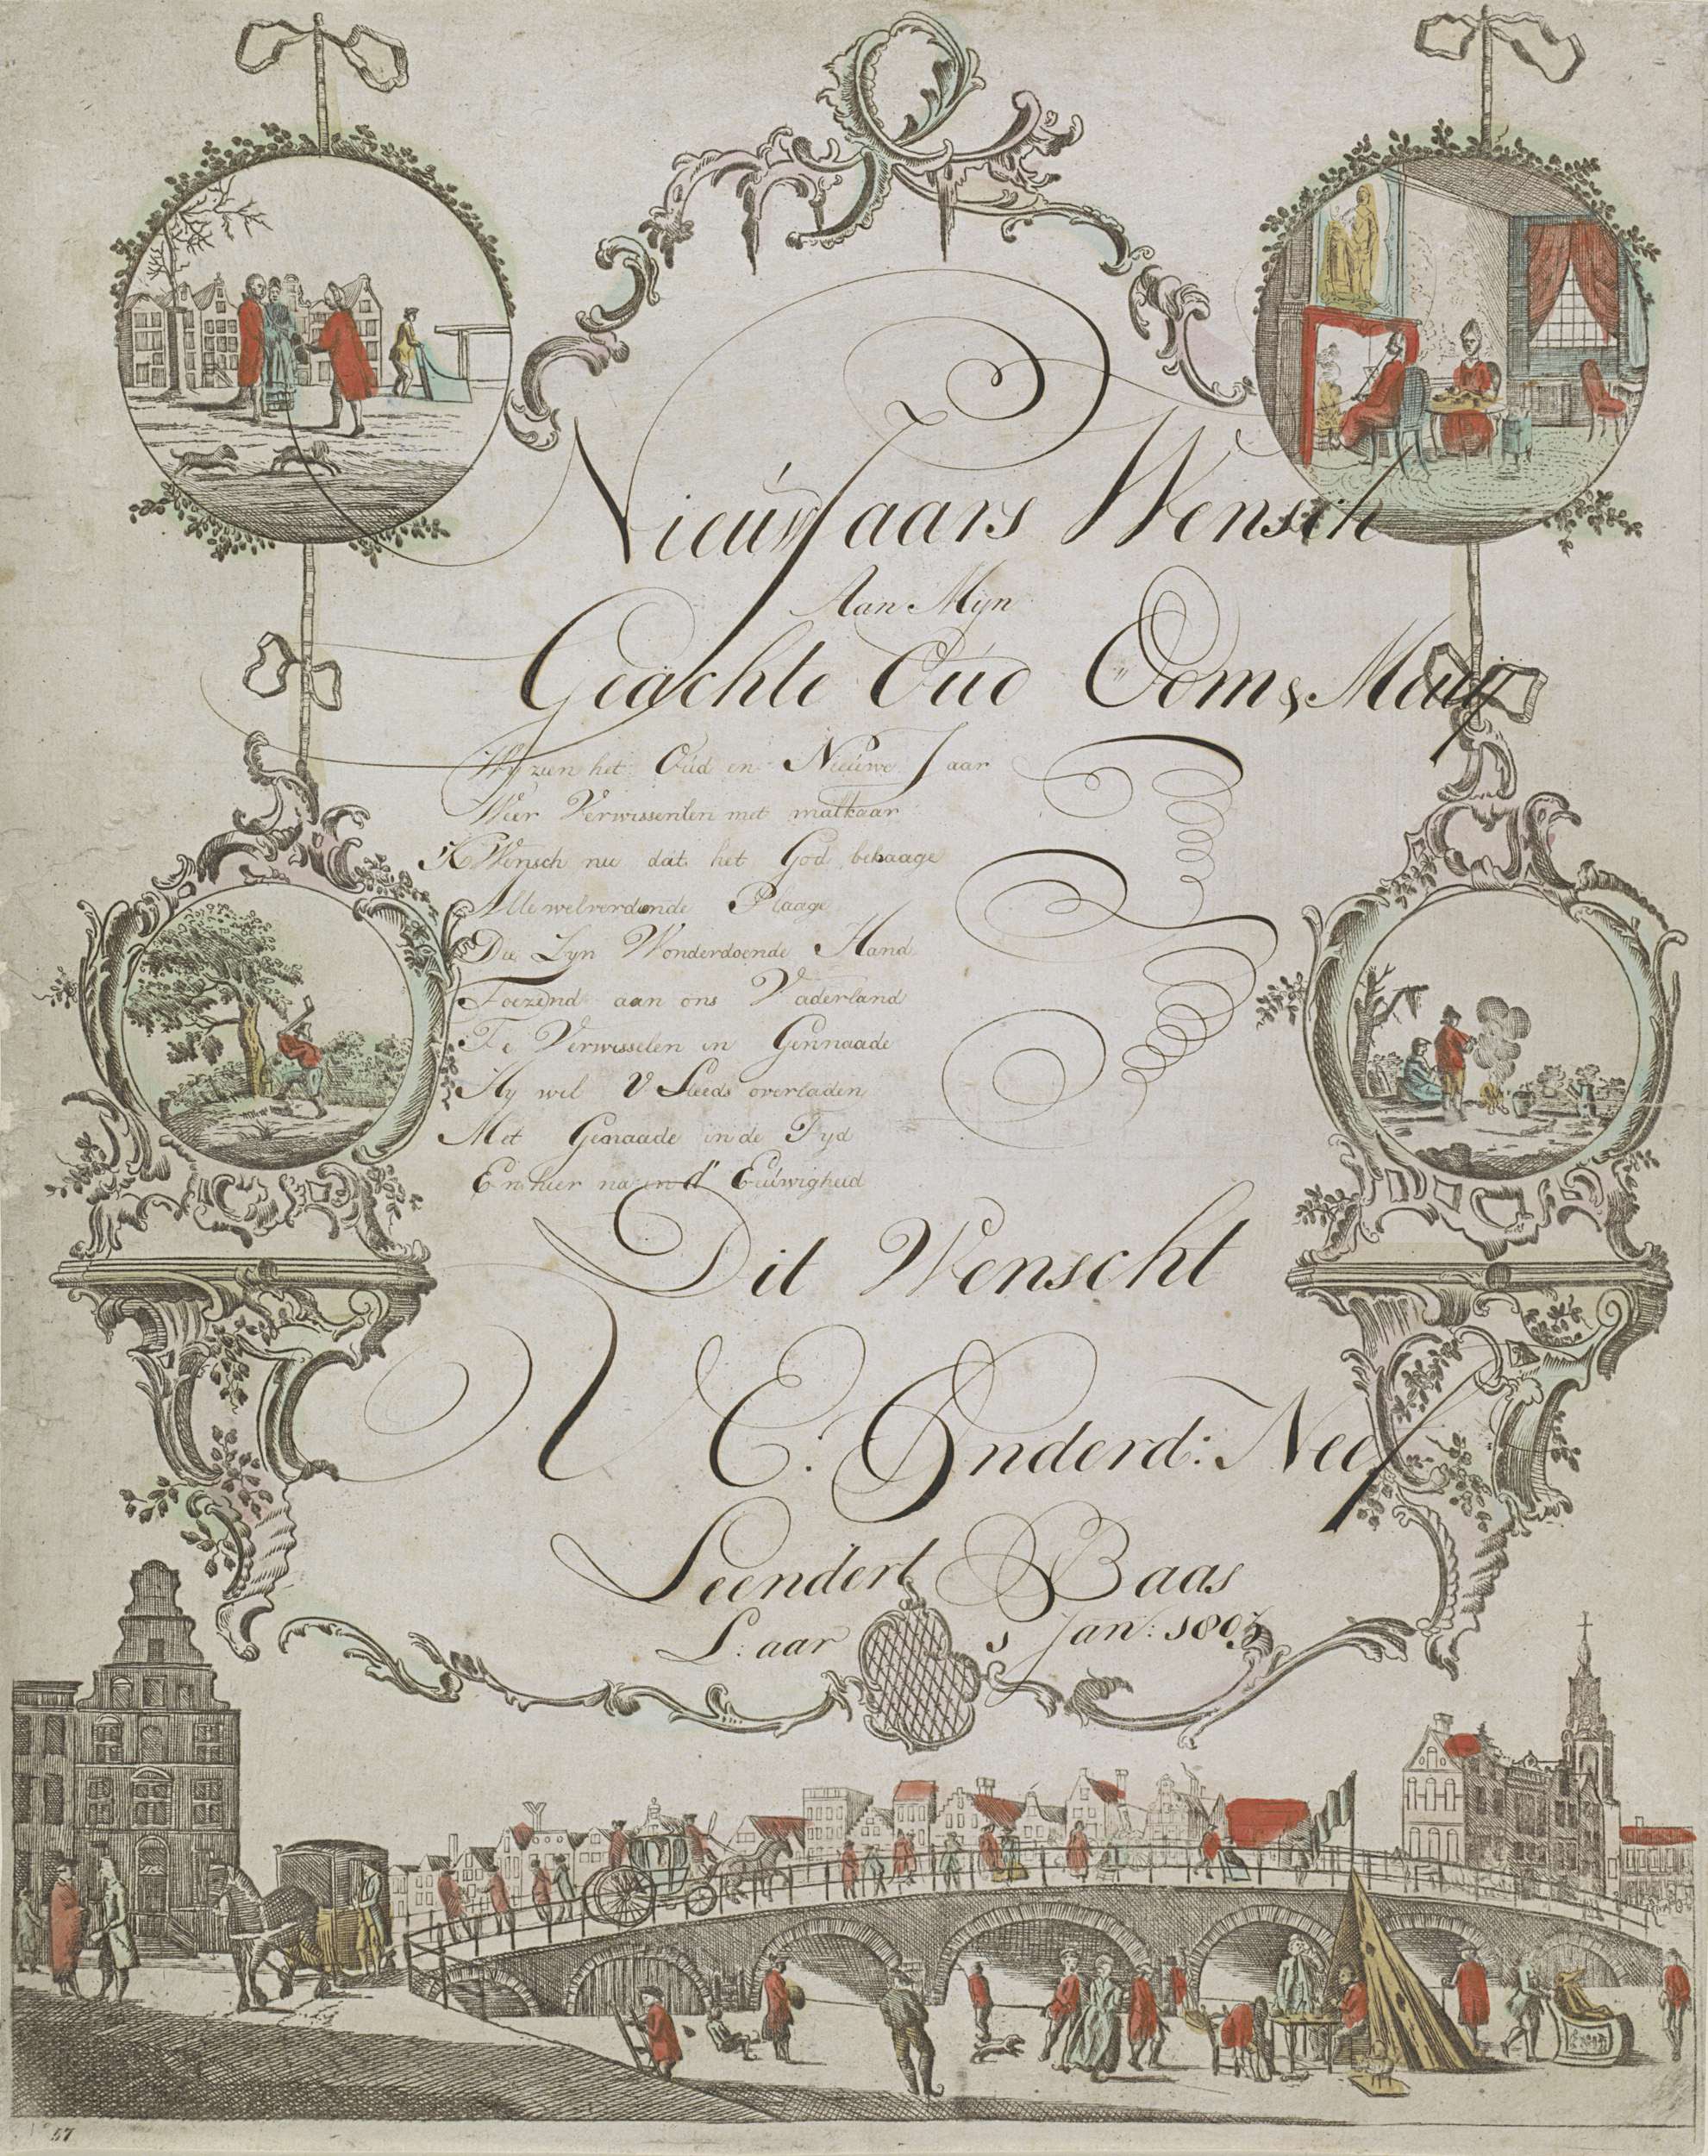 Nieuw Jaars Wensch
Aan Mijn
Geachte Oud Oom & Meuij
Wy zien het Oud en Nieuwe Jaar
Weer Verwissenlen met malkaar
'K Wensch nu dat het God behaage
Alle welverdinde Plaage
Die Zyn Wonderdoende Hand
Toezind aan ons Vaderland
Te Verwisselen in Gennaade
Hy wil U Steeds overladen
Met Genaade in de Tyd
En hier na in d' Eeuwigheid
Dit Wenscht
U E. Onderd: Neef
Leendert Baas
L: aar 1 Jan: 1803
57